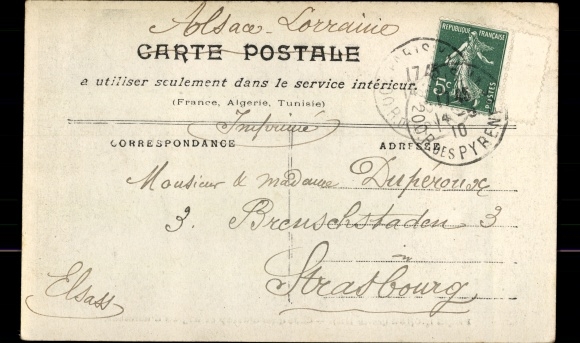 Alsace-Lorraine
CARTE POSTALE
a utiliser seulement dans le service intérieur.
(France, Algerie, Tunisie)
Imprimé
CORRESPONDANCE
ADRESSE
Monsieur & madame Duperoux
3. Brenschstaden 3
Strasbourg
Elsass
REPUBLIQUE FRANÇAISE
5c
POSTES
PARIS
17
14
10
DES PYREN